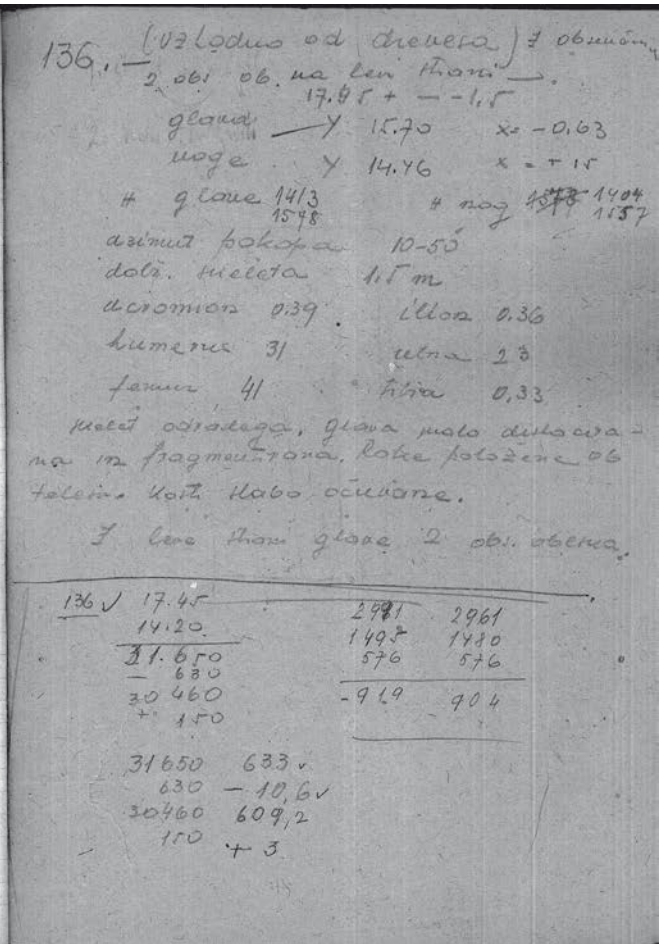 136. — (vzhodno od drevesa) z obsenčnim
2 obs. ob. na levi strani —.
17.95 + — -1.5
glava — Y 15.70 x = -0.63
noge Y 14.46 x = + 15
# glave 1413 # nog 1404
1598 1557
azimut pokopa 10-50
dolž. skeleta 1,5 m
acromion 0.39. ilion 0.36
humerus 31 ulna 23
femur 41 tibia 0,33
skelet odraslega, glava malo dislocira-
na in fragmentirana. Roke položene ob
telesu. Kosti slabo očuvane.
Z leve strani glave 2 obs. obroča.
136 ✓ 17.45 2981 2961
14.20 1495 1480
31.650 576 576
— 630
30460 -919 904
+ 150
31650 633 ✓
630 — 10,6 ✓
30460 609,2
150 + 3